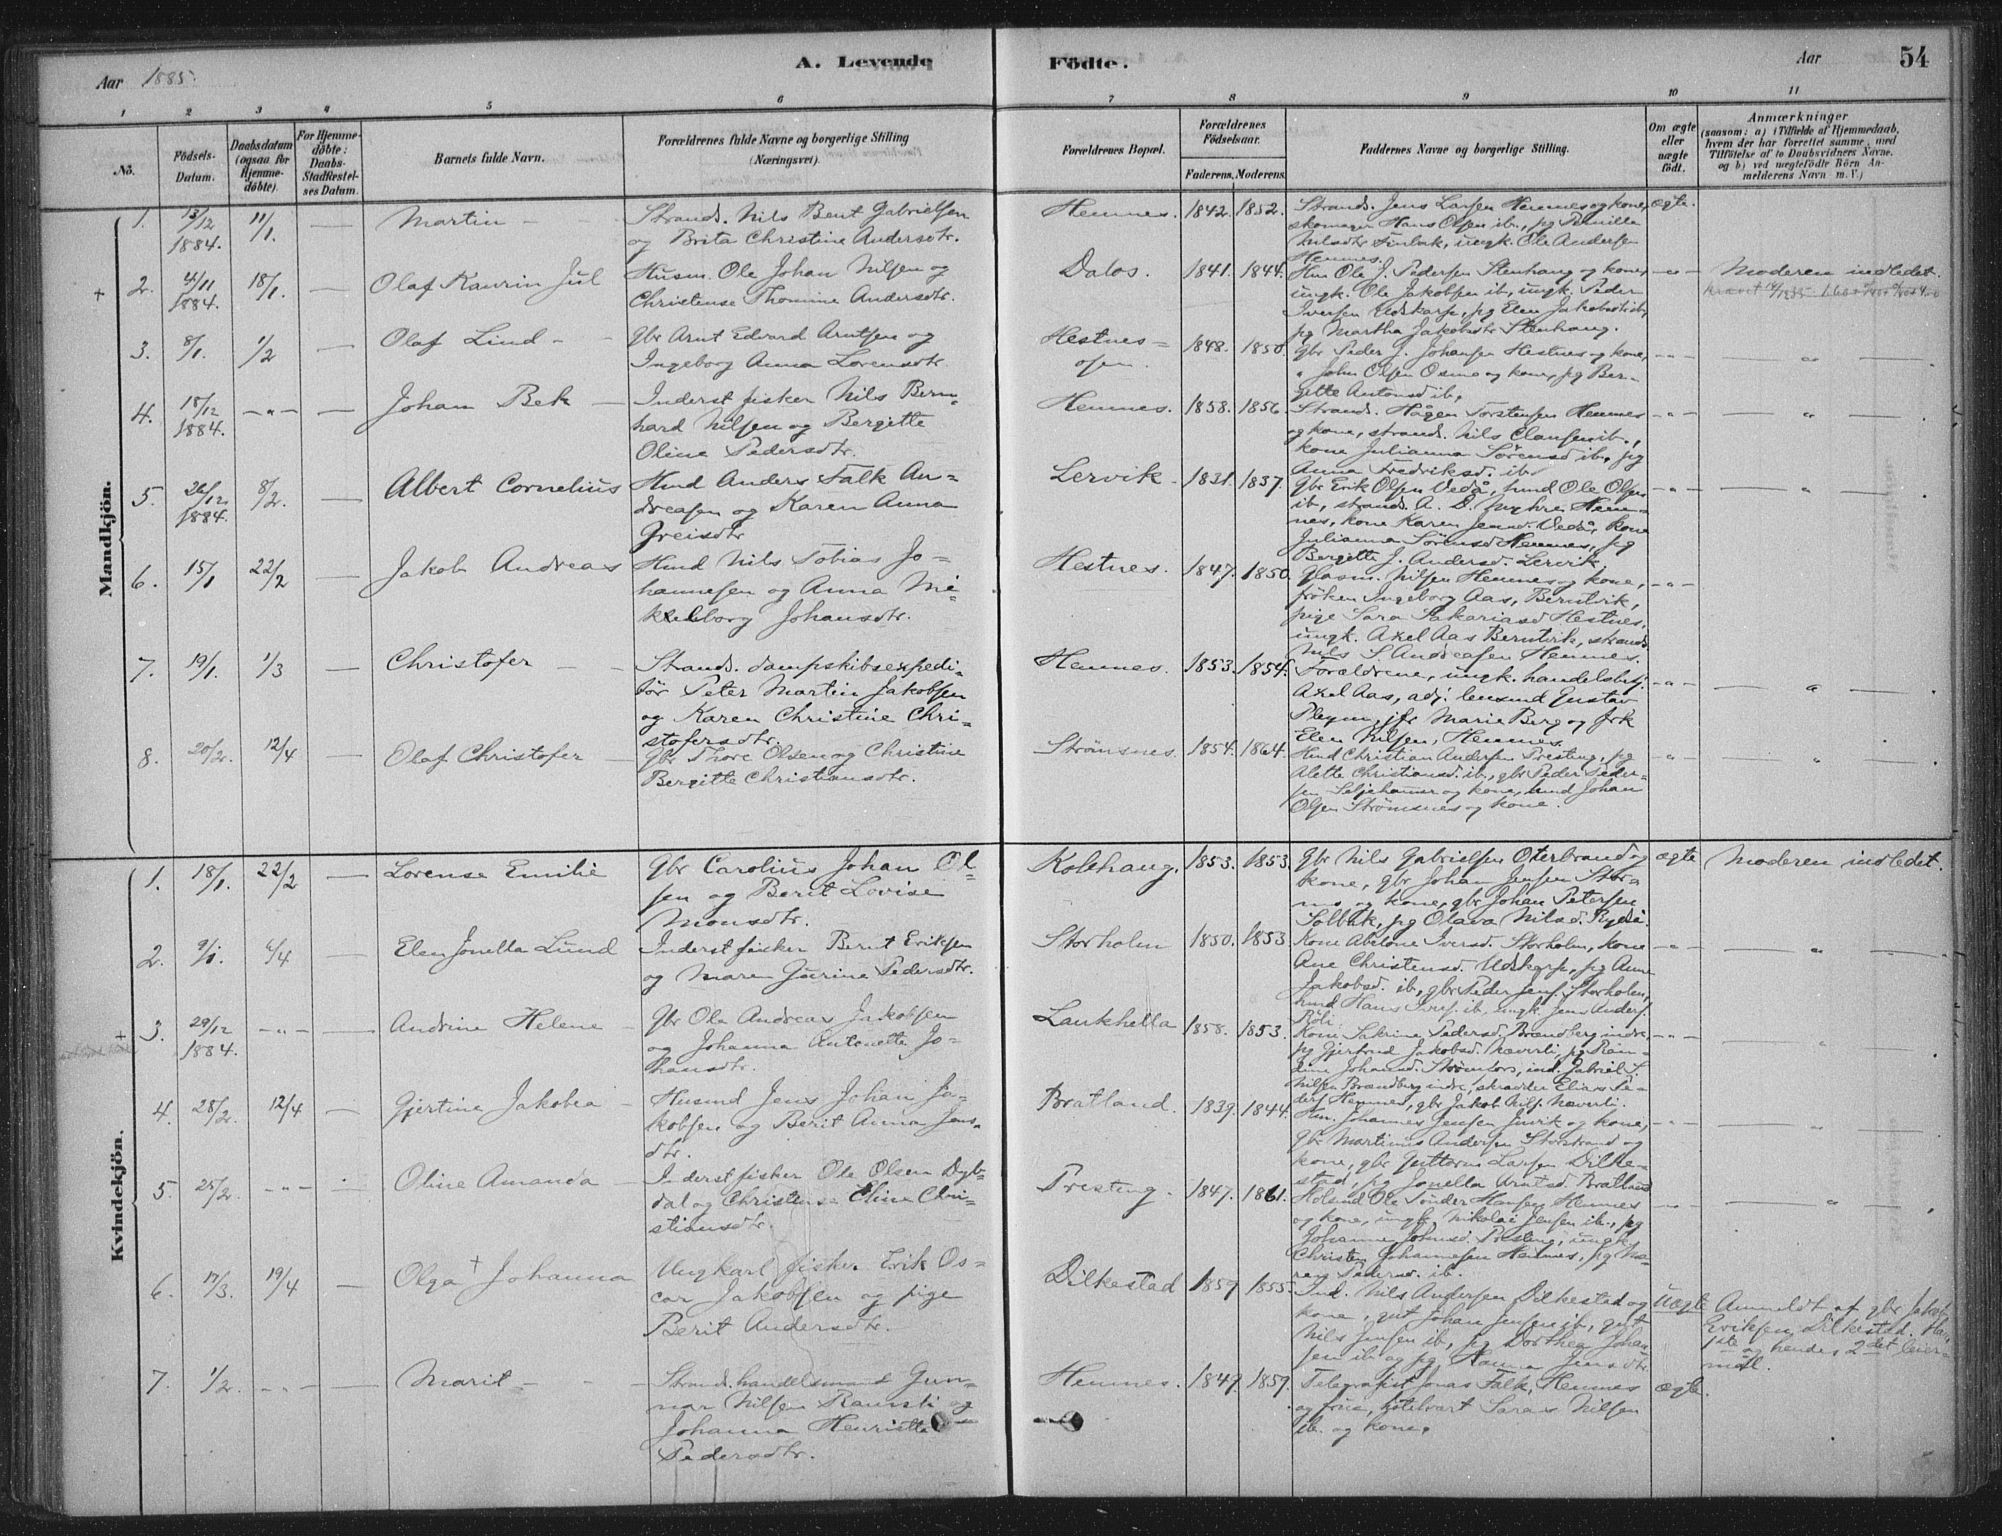 Aar 1885.
A. Levende Födte.
Aar
54
1 2 3 4 5 6 7 8 9 10 11
No.
Födsels-Datum.
Daabsdatum (ogsaa for Hjemme-döbte).
For Hjemme-döbte: Daabs-Stadfæstel-ses Datum.
Barnets fulde Navn.
Forældrenes fulde Navne og borgerlige Stilling (Næringsvei).
Forældrenes Bopæl.
Forældrenes Födselsaar.
Faderens. Moderens.
Faddernes Navne og borgerlige Stilling.
Om ægte eller uægte födt.
Anmærkninger
(saasom: a) i Tilfælde af Hjemmedaab,
hvem der har forrettet samme, med
Tilföielse af to Daabsvidners Navne.
og b) ved uægtefödte Börn An-
melderens Navn m. V.)
Mandkjön.
1. 13/12 1884. 11/1. — Martin —
Strands. Nils Bent Gabrielsen
og Brita Christine Andersdtr.
Hemnes. 1842. 1852.
Strands. Jens Larsen Hemnes og kone,
skomager Hans Olsen ib., pg Pernilla
Nilsdtr Finbak, ungk. Ole Andersen
Hemnes.
ægte.
+ 2. 21/11 1884. 18/1. — Olaf Kaurin Jul
Husm. Ole Johan Nilsen og
Christense Thomine Andersdtr.
Dalos. 1841. 1844.
Hm Ole J. Pedersen Stenhaug og kone,
ungk. Ole Jakobsen ib, ungk. Peder
Iversen Udskarp, pg Elen Jakobsdtr ib,
pg Martha Jakobsdtr Stenhaug.
—"— Moderen indledet.
3. 8/1. 1/2 — Olaf Lind —
Gbr Arnt Edvard Arntsen og
Ingeborg Anna Lorensdtr.
Hestnes-
osen. 1848. 1850.
Gbr Peder J. Johansen Hestnes og kone,
" John Olsen Osmo og kone, pg Ber-
gette Antonsd ib,
—"— "
4. 18/12 1884. —"— — Johan Bek —
Inderst fisker Nils Bern-
hard Nilsen og Bergitte
Oline Pedersdtr.
Hemnes. 1858. 1856.
Strands. Hågen Torstensen Hemnes
og kone, strands. Nils Clausen ib.,
kone Julianna Sörensd ib., pg
Anna Fredriksd. ib.
—"— "
5. 26/12 1884. 8/2. — Albert Cornelius
Hmd Anders Falk An-
dreasen og Karen Anna
Greisdtr
Lervik. 1831. 1837.
Gbr Erik Olsen Vedå, hmd Ole Olsen
ib, strands. A. D. Myhre Hem-
nes, kone Karen Jensd. Vedå, kone
Julianna Sörensd Hemnes, pg
Bergitte J. Andersd. Lervik.
—"— "
6. 15/1 22/2 — Jakob Andreas
Hmd Nils Tobias Jo-
hannesen og Anna Mi-
kkelborg Johansdtr.
Hestnes. 1847. 1850.
Glasm. Nilsen Hemnes og kone,
fröken Ingeborg Aas, Berntvik,
pige Sara Sakariasd Hestnes,
ungk. Axel Aas Berntvik, strands
Nils S. Andreasen Hemnes.
—"—
7. 19/1. 1/3 — Christofer —
Strands. dampskibsexpedi-
tör Peter Martin Jakobsen
og Karen Christine Chri-
stofersdtr.
Hemnes. 1853. 1854.
Forældrene, ungk. handelsbetj.
Axel Aas, adj. lensmd Gustav
Pleym, jfr Marie Berg og frk
Elen Nilsen, Hemnes.
—"— "
8. 20/2. 12/4 — Olaf Christofer —
Gbr Thore Olsen og Christine
Bergitte Christiansdtr.
Strömsnes. 1854. 1864.
Hmd Christian Andersen Presteng, pg
Alette Christiansd. ib., gbr Peder Peder-
sen Seljehammer og kone, hmd Johan
Olsen Strömsnes og kone.
—"— "
Kvindekjön.
1. 18/1. 22/2 — Lorense Emilie
Gbr Carolius Johan Ol-
sen og Berit Lovise
Monsdtr.
Kolbhaug. 1853. 1853.
Gbr Nils Gabrielsen Oterbrand og
kone, gbr Johan Jensen
og kone, gbr Johan Petersen
Solbak, pg Olava Nilsd.
ægte Moderen indledet.
2. 9/1. 6/4 — Elen Jonella Lund
Inderst fisker Bernt Eriksen
og Maren Gurine Pedersdtr.
Storholm 1850. 1853.
Kone Abelone Iversd. Storholm, kone
Ane Christensd. Udskarp, pg Anne
Jakobsd. ib., gbr Peder Jens. Storholm,
hmd Hans ib. ungk Jens Anders.
—"— "
+ 3. 29/12 1884. —"— — Andrine Helene —
Gbr Ole Andreas Jakobsen
og Johanna Antonetta Jo-
hansdtr.
Laukhella 1858. 1853.
Kone Sakrine Pedersd. Brændberg indre,
pg Gjertrud Jakobsd. Næverli, pg Ran-
dine Johansd. Strömfors, ind. Gabriel S.
Nilsen Brændberg indre, skrædder Elias Pe-
ders Hemnes, gbr Jakob Nils. Næverli.
—"— "
4. 28/2. 12/4 — Gjertine Jakobea —
Husmd Jens Johan Ja-
kobsen og Berit Anna Jens-
dtr.
Bratland. 1839. 1844.
Hm. Johannes Jensen og kone,
gbr Martinus Andersen Storstrand og
kone, gbr Guttorm Larsen Dilke-
stad, pg Jonella Arntsd. Bratland
—"— "
5. 25/2. —"— Oline Amanda —
Inderst fisker Ole Olsen Dyb-
dal og Christense Elina Chri-
stiansdtr.
Presteng. 1847. 1861.
Ole Hansen Hemnes
og kone, ungk. Nikolai Jensen ib., pg
Johanne Johnsd. Presteng, ungk.
Christen Johannesen Hemnes, pg Ma-
ren Pedersd. ib.
—"— "
6. 17/3. 19/4 — Olga + Johanna
Ungkarl fisker Erik Os-
car Jakobsen og pige
Berit Andersdtr.
Dilkestad 1859 1855.
Ind. Nils Andersen Dilkestad og
kone, gut Johan Jensen ib., gut
Nils Jensen ib., pg Dorthea Johan-
sen ib og pg Hanna Jensdtr
uægte Anmeldt af gbr Jakob
Eriksen Dilkestad. Han
1ste og hendes 2det leier-
mål.
7. 1/2. —"— — Marit —
Strands. handelsmand Gun-
nar Nilsen Ramsli og
Johanna Henriette
Pedersdtr.
Hemnes. 1849. 1859.
Telegrafist Jonas Falk, Hemnes
og frue, hotelvært Nilsen
ib. og kone.
ægte.